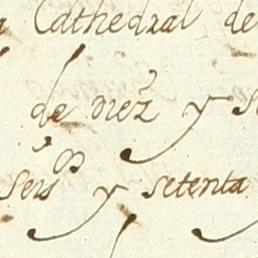 Cathedral de
de diez y s
seis y setenta